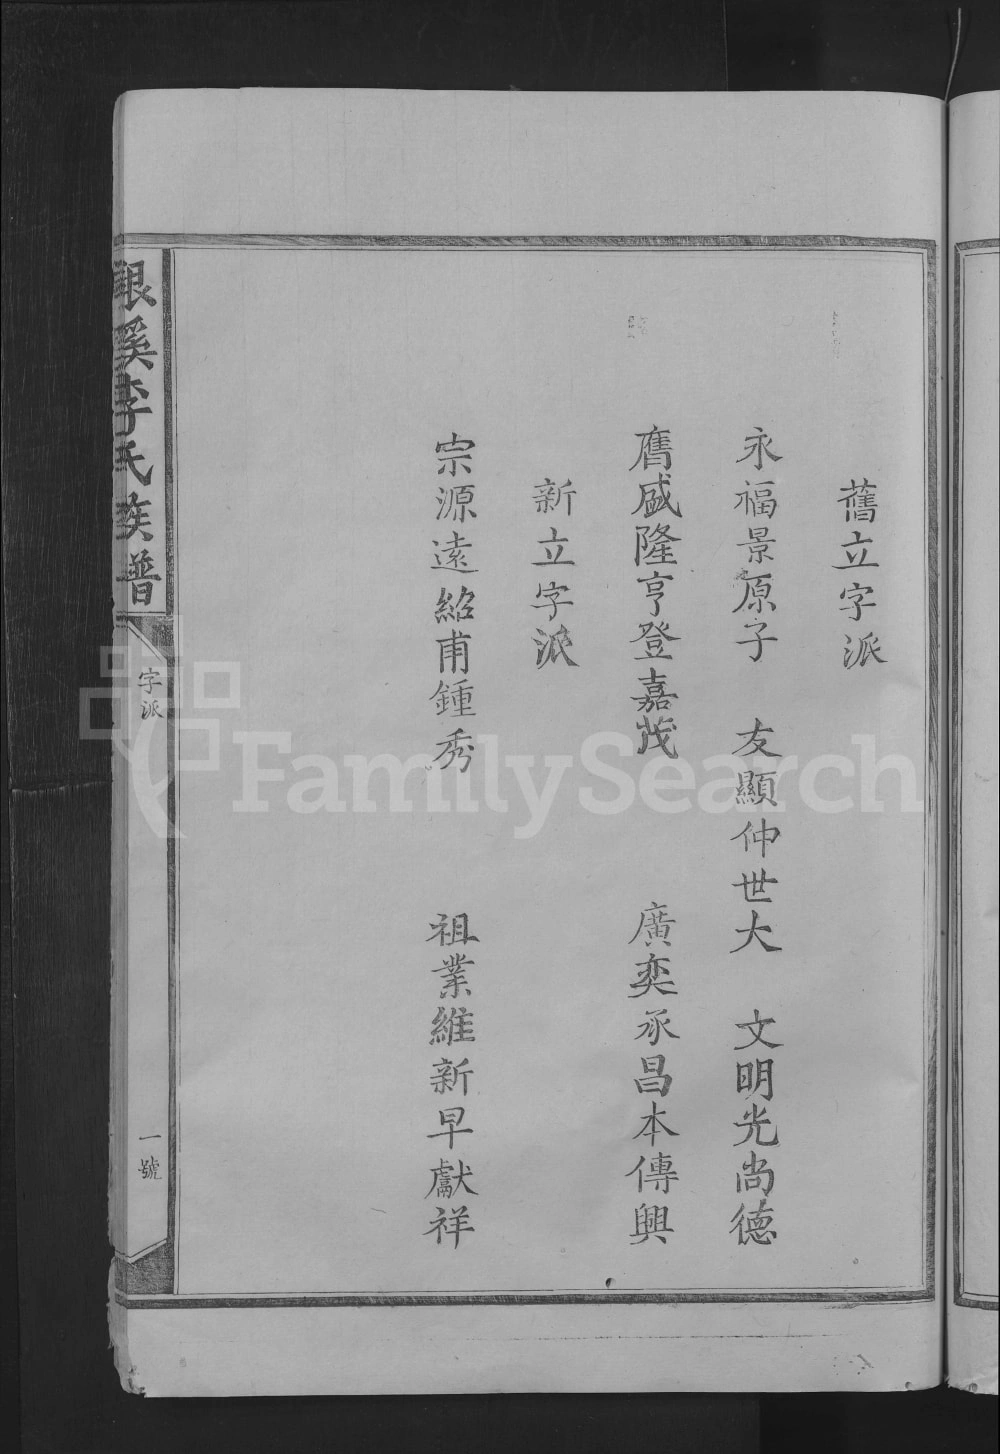 舊立字派
永福景原子 友顯仲世大 文明光尚德
膺盛隆亨登嘉茂 廣奕承昌本傳興
新立字派
宗源遠紹甫鍾秀 祖業維新早獻祥
銀溪李氏族普
字派
一號
FamilySearch